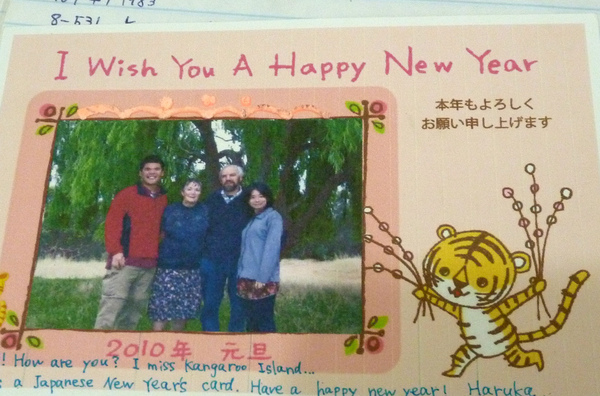 I Wish You A Happy New Year
本年もよろしく
お願い申し上げます
2010年 元旦
! How are you? I miss Kangaroo Island...
a Japanese New Year's card. Have a happy new year! Haruka...